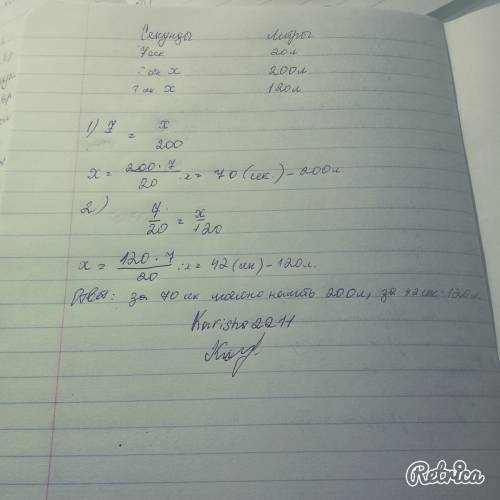 Секунды Литры
7 сек 20л
? сек. x 200л
? сек. x 120л
1) 7 = x
200
x = 200·7 / 20 ; x = 70 (сек.) – 200л.
2) 7/20 = x/120
x = 120·7 / 20 ; x = 42 (сек) – 120л.
Ответ: за 70 сек можно налить 200л, за 42 сек - 120л.
Karisha2211
Retrica